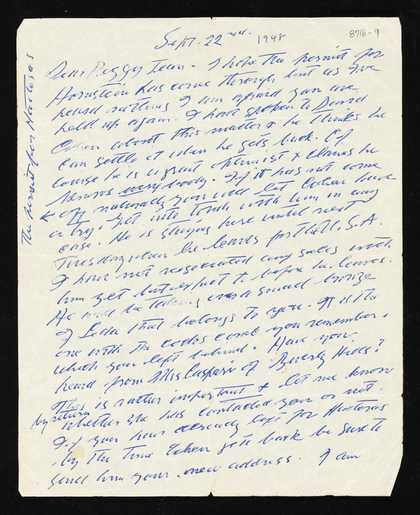 Sept. 22nd. 1948
8716-9
Dear Peggy Jean. I hope the permit for
Hornstein has come through but as I've
heard nothing I am afraid you are
held up again. I have spoken to David
Cohen about this matter & he thinks he
can settle it when he gets back. Of
course he is a great optimist & claims he
knows everybody. If it has not come
off naturally you will let Cohen have
a try. Get into touch with him in any
case. He is staying here until next
Tuesday when he leaves for S.A.
I have not negotiated any sales with
him yet but expect to before he leaves.
He will be taking over a small bronze
of Leda that belongs to you. It is the
one with the cock you remember,
which you left behind. Have you
heard from Mrs Casparis of Beverly Hills?
This is rather important & let me know
by return whether she has contacted you or not.
If you have already left for
by the time Cohen gets back be sure to
send him your new address. I am
The permit for